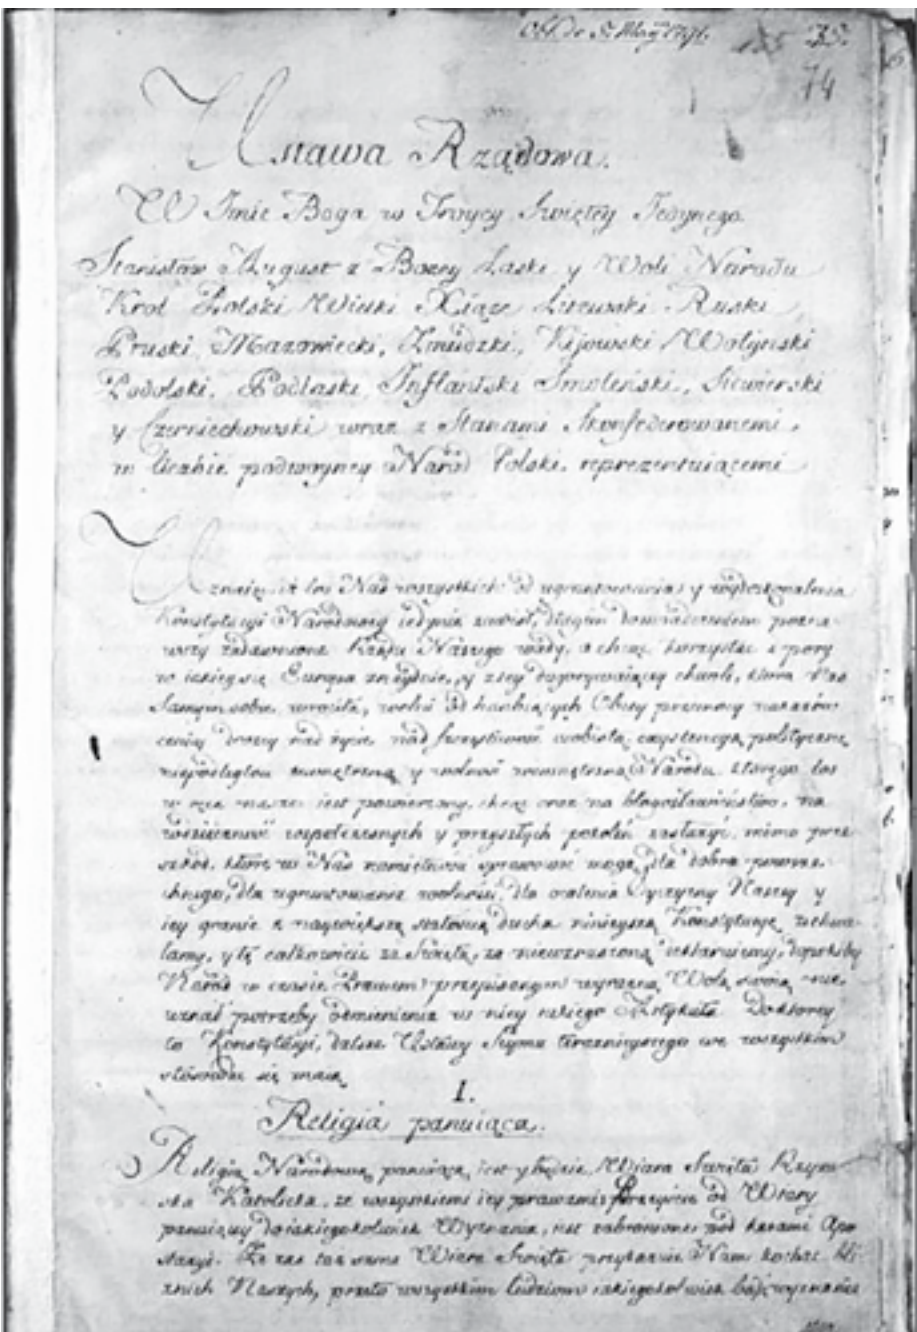 Obl. de 5. Maÿ 1791.
35.
74
Ustawa Rządowa.
W Imie Boga w Troycy Swiętey Jedynego.
Stanisław August z Bozey Łaski y Woli Narodu
Krol Polski Wielki Xiąze Litewski Ruski
Pruski, Mazowiecki, Zmudzki, Kijowski Wołyński
Podolski, Podlaski, Inflantski Smoleński, Siewierski
y Czerniechowski wraz z Stanami Skonfederowanemi,
w liczbie podwoyney Naród Polski reprezentuiącemi
Uznaiąc, iż los Nas wszystkich od ugruntowania y wydoskonalenia
Konstytucyi Narodowey iedynie zawisł, długim doswiadczeniem pozna-
wszy zadawnione Rządu Naszego wady, a chcąc korzystać z pory
w iakiey się Europa znayduie, y z tey dogorywaiącey chwili, ktora Nas
Samym sobie wrociła, wolni od hanbiących Obcey przemocy nakazów
ceniąc drozey nad zycie, nad szczęśliwość osobistą exystencyą polityczną
niepodległość zewnętrzną y wolność wewnętrzną Narodu, ktorego los
w ręce nasze iest powierzony, chcąc oraz na błogosławieństwo, na
wdzięczność wspołczesnych y przyszłych pokoleń zasłużyć, mimo prze-
szkod, ktore w Nas namiętności sprawować mogą, dla dobra powsze-
chnego, dla ugruntowania wolności, dla ocalenia Oyczyzny Naszey y
iey granic z naywiększą stałością ducha ninieyszą Konstytucyę uchwa-
lamy, y tę całkowicie za Swiętą, za niewzruszoną deklaruiemy, dopokiby
Naród w czasie Prawem przepisanym wyrazną Wolą swoią nie
uznał potrzeby odmienienia w niey iakiego Artykułu. Do ktorey
to Konstytucyi, dalsze Ustawy Seymu teraznieyszego we wszystkim
stosować się maią.
I.
Religia panuiąca.
Religią Narodową panuiącą iest y będzie Wiara Swięta Rzym-
ska Katolicka, ze wszystkiemi iey prawami. Przeyście od Wiary
panuiącey do iakiegokolwiek Wyznania, iest zabronione pod karami Apo-
stazyi. Ze zas taz sama Wiara Swięta przykazuie Nam kochać bli-
znich Naszych, przeto wszystkim ludziom iakiegokolwiek bądź wyznania